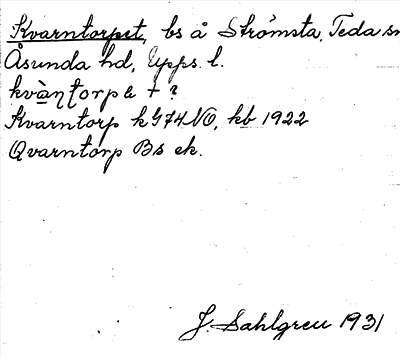 Kvarntorpet, bs å Strömsta, Teda sn
Åsunda hd, Upps. l.
Kvarntorp k G74NO, kb 1922
Qvarntorp Bs ek.
J. Sahlgren 1931